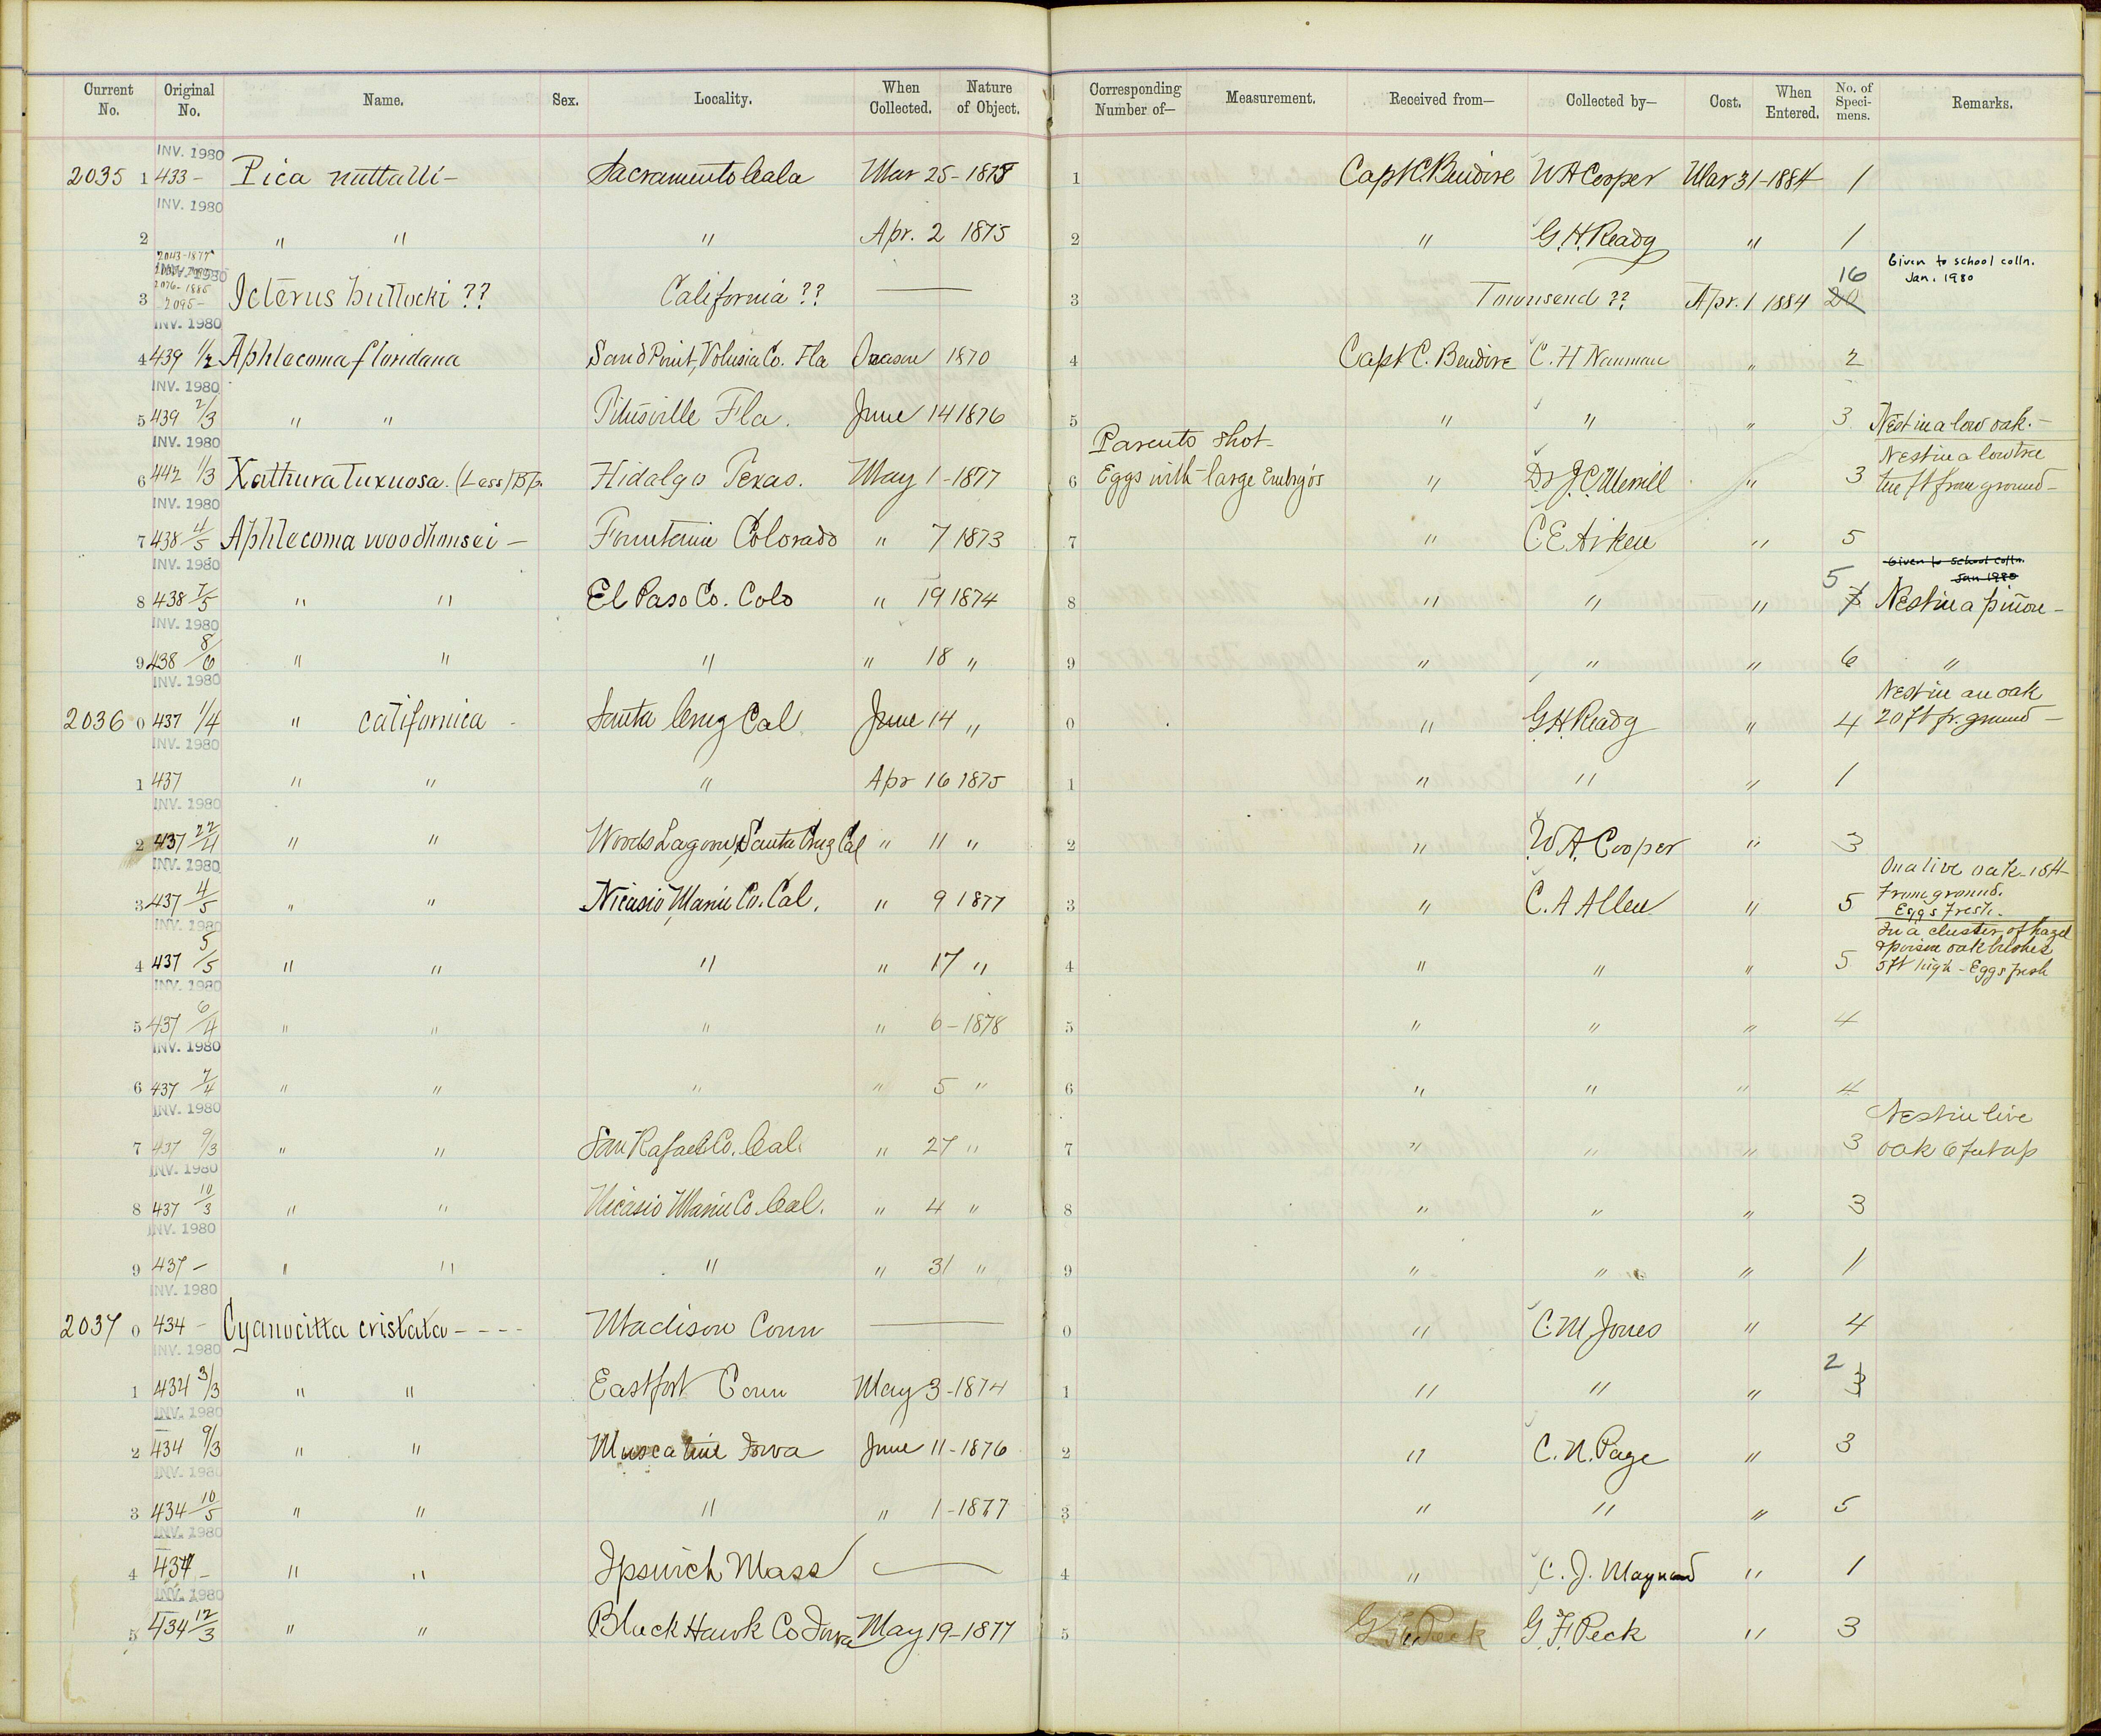 Current No. Original No. Name. Sex. Locality. When Collected. Nature of Object. Corresponding Number of— Measurement. Received from— Collected by— Cost. When Entered. No. of Specimens. Remarks.
INV. 1980
2035 1 433 – Pica nuttalli – Sacramento Cala Mar 25 - 1878 1 Capt C. Bendire W A Cooper Mar 31 - 1884 1
INV. 1980
2 " " " Apr. 2 1875 2 " G. H. Ready " 1
2043-1877
INV. 1980 Given to school colln.
2076-1885 16 Jan. 1980
3 2095 – Icterus bullocki ?? California ?? — 3 Townsend ?? Apr. 1 1884 20
INV. 1980
4 439 1/2 Aphlecoma floridana Sand Point, Volusia Co. Fla Season 1870 4 Capt C. Bendire C. H Nauman " 2
INV. 1980
5 439 2/3 " " Titusville Fla. June 14 1876 5 " " " 3 Nest in a low oak. –
INV. 1980 Parents shot - Nest in a low tree
6 442 1/3 Xathura luxuosa. (Less) Bp. Hidalgo Texas. May 1 - 1877 6 Eggs with large Embryos " Dr J. C. Merrill " 3 ten ft from ground –
INV. 1980
7 438 4/5 Aphlecoma woodhousei – Fountain Colorado " 7 1873 7 " C. E. Aiken " 5
INV. 1980 Given to school colln.
5 Jan 1980
8 438 7/5 " " El Paso Co. Colo " 19 1874 8 " " " 7 Nest in a piñon –
INV. 1980
9 438 8/6 " " " " 18 " 9 " " " 6 "
INV. 1980 Nest in an oak
2036 0 437 1/4 " californica - Santa Cruz Cal June 14 " 0 " G. H. Ready " 4 20 ft fr. ground –
INV. 1980
1 437 " " " Apr 16 1875 1 " " " 1
INV. 1980
2 437 22/4 " " Woods Lagoon, Santa Cruz Cal " 11 " 2 " W. A. Cooper " 3
INV. 1980 On a live oak - 18 ft
From ground.
3 437 4/5 " " Nicasio, Marin Co. Cal. " 9 1877 3 " C. A Allen " 5 Eggs Fresh.
INV. 1980 In a cluster of hazel
& poison oak bushes
4 437 5/5 " " " " 17 " 4 " " " 5 5 ft high - Eggs fresh
INV. 1980
5 437 6/4 " " " " 6 - 1878 5 " " " 4
INV. 1980
6 437 7/4 " " " " 5 " 6 " " " 4
INV. 1980 Nest in live
7 437 9/3 " " San Rafael Co. Cal. " 27 " 7 " " " 3 oak 6 feet up
INV. 1980
8 437 10/3 " " Nicasio Marin Co. Cal. " 4 " 8 " " " 3
INV. 1980
9 437 – " " " " 31 " 9 " " " 1
INV. 1980
2037 0 434 – Cyanocitta cristata - - - - Madison Conn — 0 " C. M. Jones " 4
INV. 1980 2
1 434 3/3 " " Eastfort Conn May 3 - 1874 1 " " " 3
INV. 1980
2 434 9/3 " " Muscatine Iowa June 11 - 1876 2 " C. N. Page " 3
INV. 1980
3 434 10/5 " " " " 1 - 1877 3 " " " 5
INV. 1980
4 434 – " " Ipswich Mass — 4 " C. J. Maynard " 1
INV. 1980
5 434 12/3 " " Black Hawk Co Iowa May 19 - 1877 5 G. F. Peck G. F. Peck " 3